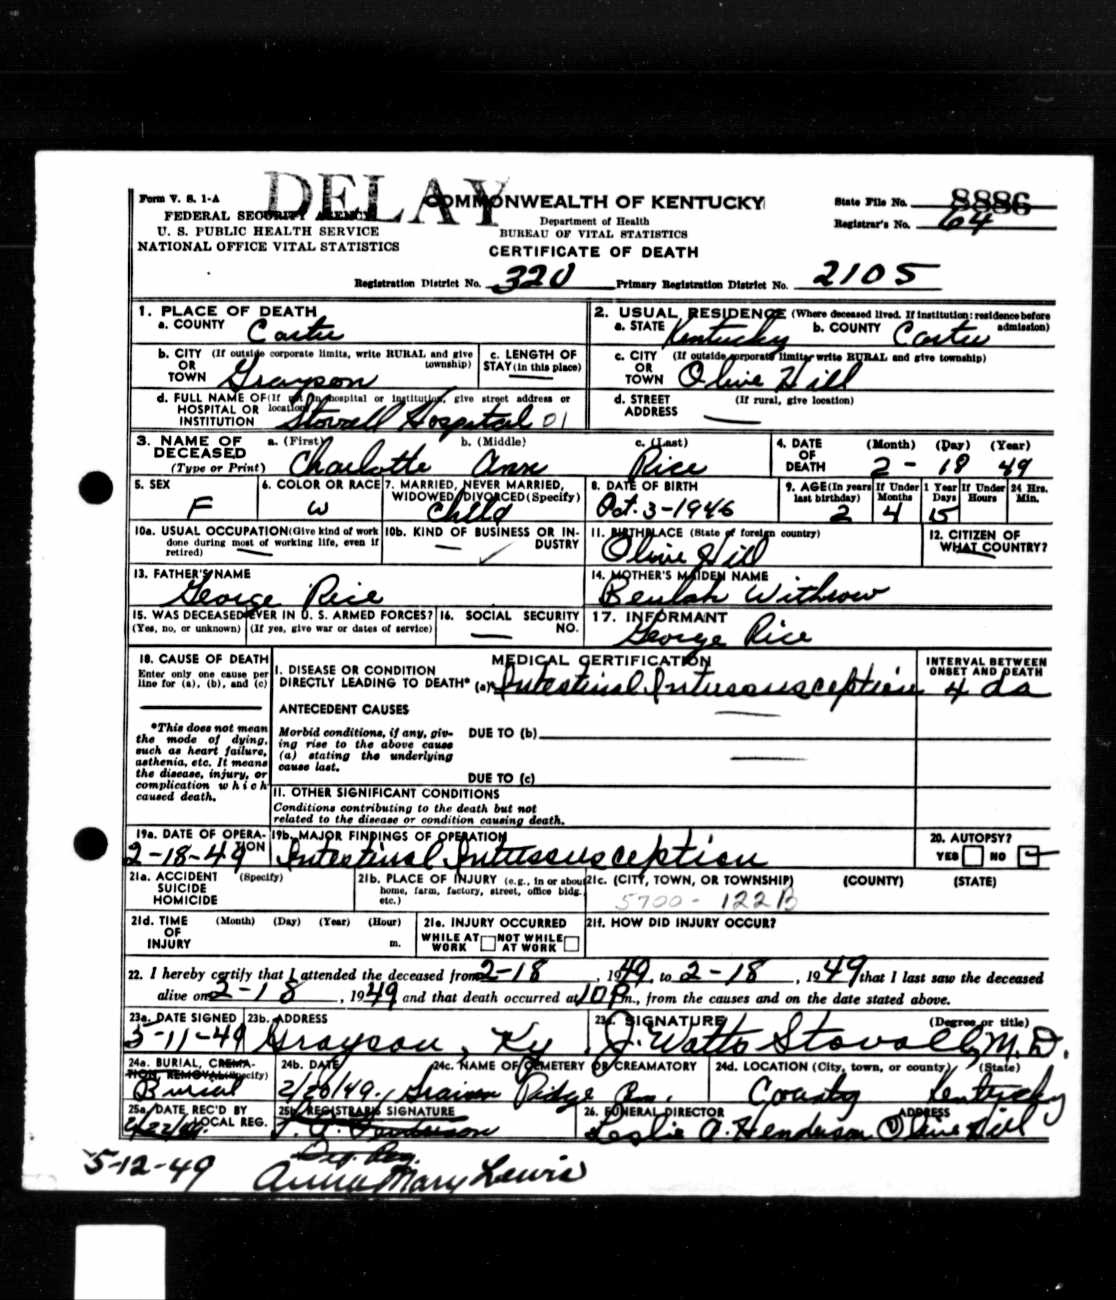 DELAY
Form V. S. 1-A
FEDERAL SECURITY AGENCY
U. S. PUBLIC HEALTH SERVICE
NATIONAL OFFICE VITAL STATISTICS
COMMONWEALTH OF KENTUCKY
Department of Health
BUREAU OF VITAL STATISTICS
CERTIFICATE OF DEATH
State File No. 8886
Registrar's No. 64
Registration District No. 320 Primary Registration District No. 2105
1. PLACE OF DEATH
a. COUNTY Carter
2. USUAL RESIDENCE (Where deceased lived. If institution: residence before admission)
a. STATE Kentucky b. COUNTY Carter
b. CITY OR TOWN (If outside corporate limits, write RURAL and give township) Grayson
c. LENGTH OF STAY (in this place) —
c. CITY OR TOWN (If outside corporate limits, write RURAL and give township) Olive Hill
d. FULL NAME OF HOSPITAL OR INSTITUTION (If not in hospital or institution, give street address or location) Stovall Hospital 01
d. STREET ADDRESS (If rural, give location) —
3. NAME OF DECEASED (Type or Print) a. (First) Charlotte b. (Middle) Ann c. (Last) Rice
4. DATE OF DEATH (Month) (Day) (Year) 2 - 18 49
5. SEX F
6. COLOR OR RACE W
7. MARRIED, NEVER MARRIED, WIDOWED, DIVORCED (Specify) Child
8. DATE OF BIRTH Oct. 3-1946
9. AGE (In years last birthday) 2 If Under 1 Year Months 4 Days 15 If Under 24 Hrs. Hours Min.
10a. USUAL OCCUPATION (Give kind of work done during most of working life, even if retired) —
10b. KIND OF BUSINESS OR INDUSTRY —
11. BIRTHPLACE (State or foreign country) Olive Hill
12. CITIZEN OF WHAT COUNTRY? —
13. FATHER'S NAME George Rice
14. MOTHER'S MAIDEN NAME Beulah Withrow
15. WAS DECEASED EVER IN U. S. ARMED FORCES?
(Yes, no, or unknown) (If yes, give war or dates of service)
16. SOCIAL SECURITY NO. —
17. INFORMANT George Rice
18. CAUSE OF DEATH
Enter only one cause per line for (a), (b), and (c)
*This does not mean the mode of dying, such as heart failure, asthenia, etc. It means the disease, injury, or complication which caused death.
MEDICAL CERTIFICATION
INTERVAL BETWEEN ONSET AND DEATH
I. DISEASE OR CONDITION DIRECTLY LEADING TO DEATH* (a) Intestinal Intussusception 4 ds
ANTECEDENT CAUSES
Morbid conditions, if any, giving rise to the above cause (a) stating the underlying cause last.
DUE TO (b)
DUE TO (c)
II. OTHER SIGNIFICANT CONDITIONS
Conditions contributing to the death but not related to the disease or condition causing death.
19a. DATE OF OPERATION 2-18-49
19b. MAJOR FINDINGS OF OPERATION Intestinal Intussusception
20. AUTOPSY?
YES NO
21a. ACCIDENT SUICIDE HOMICIDE (Specify)
21b. PLACE OF INJURY (e.g., in or about home, farm, factory, street, office bldg. etc.)
21c. (CITY, TOWN, OR TOWNSHIP) (COUNTY) (STATE)
5700 - 122B
21d. TIME OF INJURY (Month) (Day) (Year) (Hour) m.
21e. INJURY OCCURRED
WHILE AT WORK NOT WHILE AT WORK
21f. HOW DID INJURY OCCUR?
22. I hereby certify that I attended the deceased from 2-18, 1949, to 2-18, 1949 that I last saw the deceased
alive on 2-18, 1949 and that death occurred at 10 P m., from the causes and on the date stated above.
23a. DATE SIGNED 5-11-49
23b. ADDRESS Grayson, Ky.
23c. SIGNATURE (Degree or title) J. Watts Stovall, M.D.
24a. BURIAL, CREMATION, REMOVAL (Specify) Burial
24b. DATE 2/20/49
24c. NAME OF CEMETERY OR CREAMATORY Ridge
24d. LOCATION (City, town, or county) (State) County Kentucky
25a. DATE REC'D BY LOCAL REG.
25b. REGISTRAR'S SIGNATURE
26. FUNERAL DIRECTOR ADDRESS
Leslie A. Henderson Olive Hill
5-12-49
Anna Mary Lewis